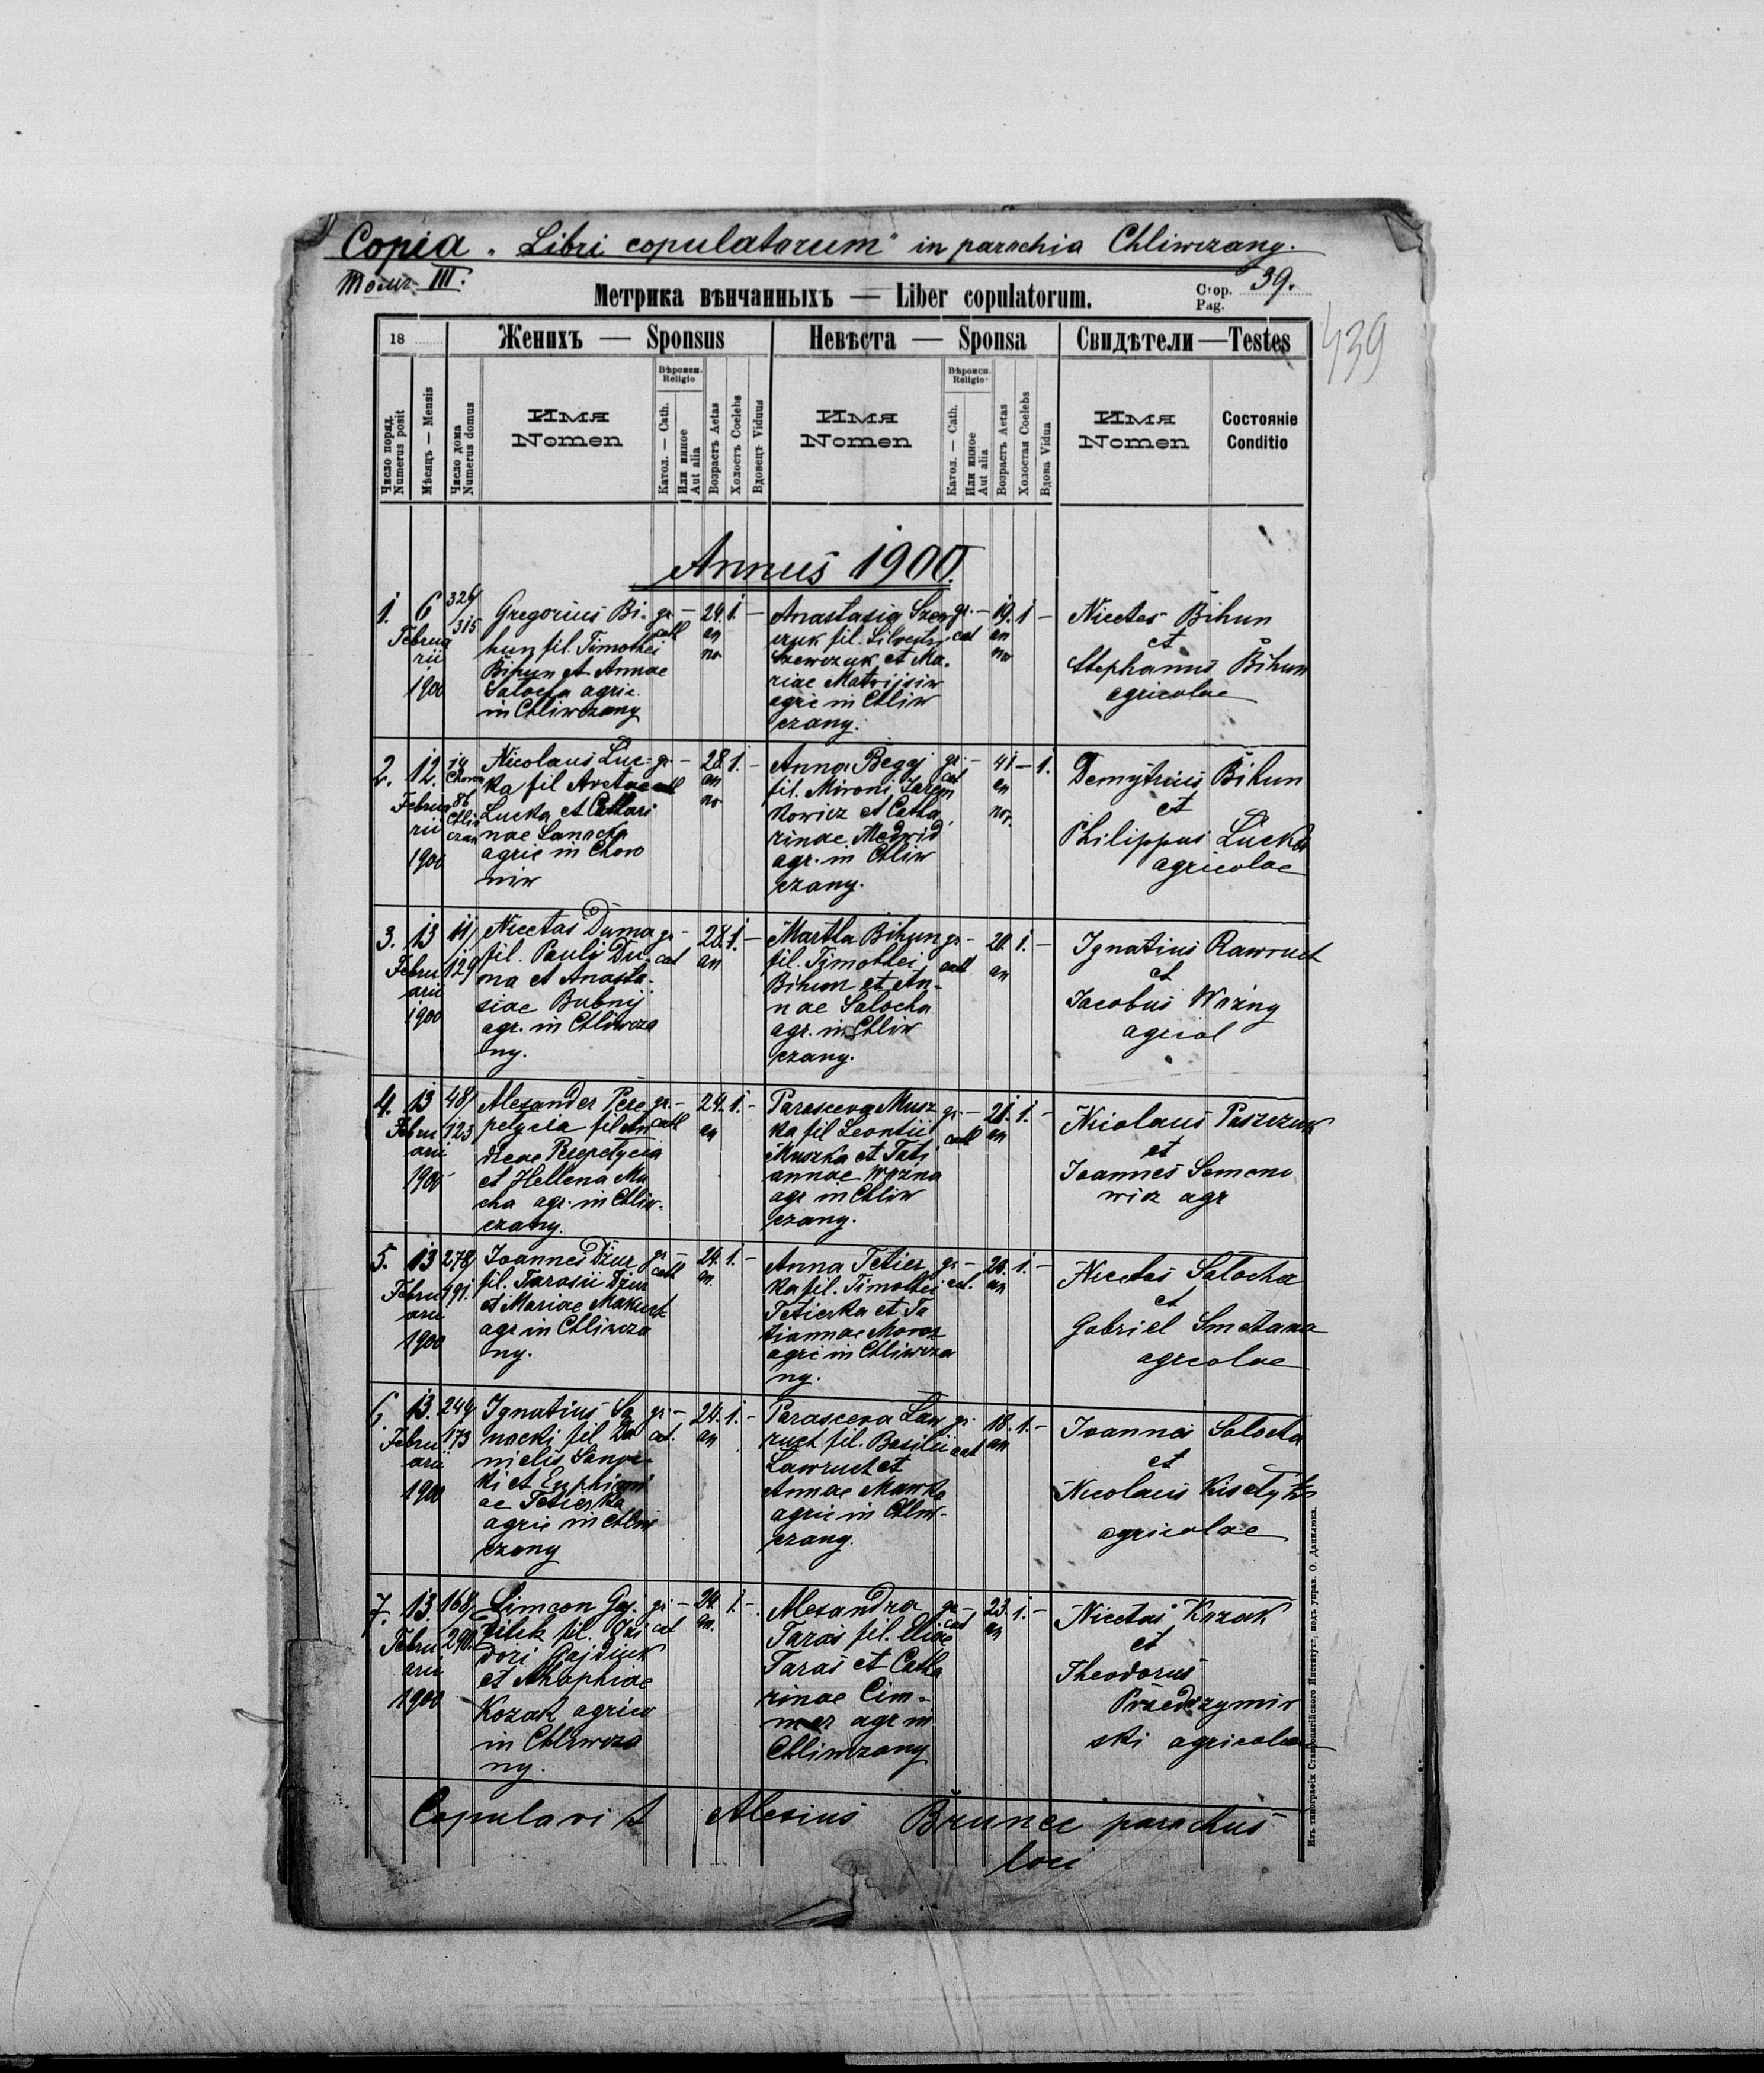 Copia „Libri copulatorum" in parochia Chliwczany.
Томъ III.
Метрика вѣнчанныхъ — Liber copulatorum.
Стор. Pag. 39.
439
18
Женихъ — Sponsus
Невѣста — Sponsa
Свидѣтели — Testes
Число поряд. Numerus posit
Мѣсяцъ — Mensis
Число дома Numerus domus
Имя Nomen
Вѣроисп. Religio
Катол. — Cath.
Или инное Aut alia
Возрастъ Aetas
Холостъ Coelebs
Вдовецъ Viduus
Имя Nomen
Вѣроисп. Religio
Катол. — Cath.
Или инное Aut alia
Возрастъ Aetas
Холостая Coelebs
Вдова Vidua
Имя Nomen
Состояніе Conditio
Annus 1900.
1. 6 Februarii 1900
315
Gregorius Bi-
hun fil. Timothei
Bihun et Annae
Salocha agric.
in Chliwczany
gr. cath — 24. an no 1. —
Anastasia Szew
czuk fil. Silvestri
Szewczuk et Ma-
riae Matwijsiw
agric in Chliw
czany.
gr. cat — 19. an no 1 —
Nicetas Bihun
et
Stephanus Bihun
agricolae
2. 12 Februarii 1900
14 86 Chliw czan
Nicolaus Luc-
ka fil
Lucka et Cathari
nae Sanocka
agric in Choro
niw
gr. cath — 28. an no 1. —
Anna Begej
fil. Mironi Jarem
kowicz et Catha
rinae Medwid
agr. in Chliw
czany.
gr. cat — 41 an nor. — 1.
Demytrius Bihun
et
Philippus Lucka
agricolae
3. 13 Februarii 1900
11/ 129
Nicetas Duma
fil. Pauli Du-
ma et Anasta-
siae Bubnij
agr. in Chliwcza
ny.
gr. cat — 28. an 1. —
Martha Bihun
fil. Timothei
Bihun et An-
nae Salocha
agr. in Chliw
czany.
gr. cath — 20. an 1. —
Ignatius Rawruch
et
Jacobus Wazny
agricol
4. 13 Februarii 1900
48/ 123
Alexander Pere
petycia fil An
dreae Perepetycia
et Hellena Mu
cha agr. in Chliw-
czany.
gr. cath — 24. an 1. —
Parasceva Musz
ka fil Leontii
Muszka et Tati
annae Wazna
agr in Chliw
czany.
gr. cath — 21. an 1. —
Nicolaus Paszczuk
et
Joannes Semeno
wicz agr
5. 13 Februarii 1900
278/ 191.
Joannes Dziur
fil. Tarasii Dziur
et Mariae Makuch
agr in Chliwcza
ny.
gr cath — 24. an. 1. —
Anna Tetier
ka fil. Timothei
Tetierka et Ta
tiannae Moroz
agric in Chliwcza
ny.
gr. cat. — 20. an 1. —
Nicetas Salocha
et
Gabriel Smetana
agricolae
6 13. Februarii 1900
249 173
Ignatius Sa
nocki fil Da
nielis Sanoc-
ki et Euphimi
ae Tetierka
agric in Chliw
czany
gr. cat. — 24. an 1. —
Parasceva Law
ruch fil. Basilii
Lawruch et
Annae Mawka
agric in Chliw-
czany.
gr. cat 18. an 1. —
Joannes Salocha
et
Nicolaus
agricolae
7. 13. Februarii 1900
168/ 290.
Simeon Gaj-
diuk fil. Isi
dori Gajdiuk
et Ahaphiae
Kozak agric
in Chliwcza
ny.
gr. cat — 24. an. 1. —
Alexandra
Taras fil. Eliae
Taras et Catha
rinae Cim-
mer agr in
Chliwczany
gr. cat — 23. an 1. —
Nicetas Kozak
et
Theodorus
Przedrzymir
ski agricolae
Copulavit Alexius Brunec parochus
loci
Изъ типографіи Ставропигійского Института подъ управ. О. Данилюка.